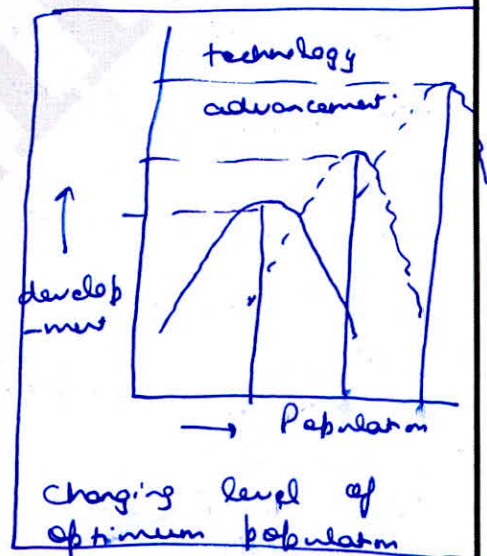 technology
advancement.
develop
-ment
Population
Changing level of
optimum population